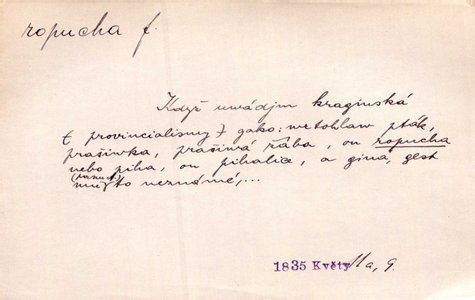 ropucha f.
Když uwádjm kraginská
( provincialismy ) gako: wrtohlaw pták,
prašiwka, prašiwá žába, on ropucha
nebo piha, on pihalice, a giná, gest
mi to neznámé,...
1835 Květy 11a, 9.